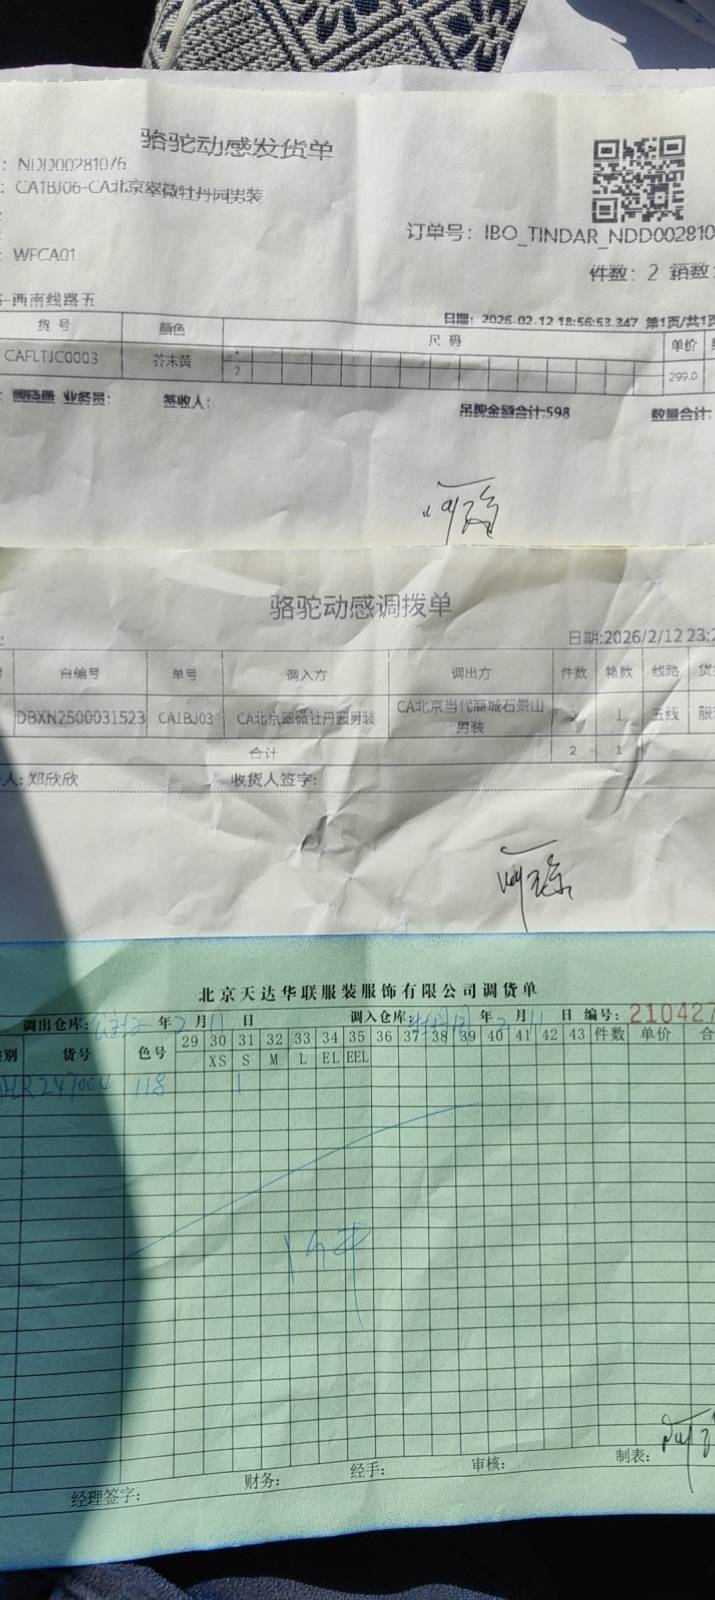 骆驼动感发货单
: NDD00281076
: CA1BJ06-CA北京翠微牡丹园男装
订单号: IBO_TINDAR_NDD002810
: WFCA01
件数: 2 箱数:
-西南线路五
日期: 2026-02-12 18:56:53.347 第1页/共1页
货号 颜色 尺码 单价
CAFLTJC0003 芥末黄 2 299.0
业务员: 签收人: 吊牌金额合计:598 数量合计:
骆驼动感调拨单
日期:2026/2/12 23:2
自编号 单号 调入方 调出方 件数 箱数 线路
DBXN2500031523 CA1BJ03 CA北京翠微牡丹园男装 CA北京当代商城石景山男装 2 1 五线
合计 2 1
人: 郑欣欣 收货人签字:
北京天达华联服装服饰有限公司调货单
调出仓库: 年 2 月 11 日 调入仓库: 牡丹园 年 2 月 11 日 编号: 210427
别 货号 色号 29 30 31 32 33 34 35 36 37 38 39 40 41 42 43 件数 单价 合
XS S M L EL EEL
118 1
经理签字: 财务: 经手: 审核: 制表: